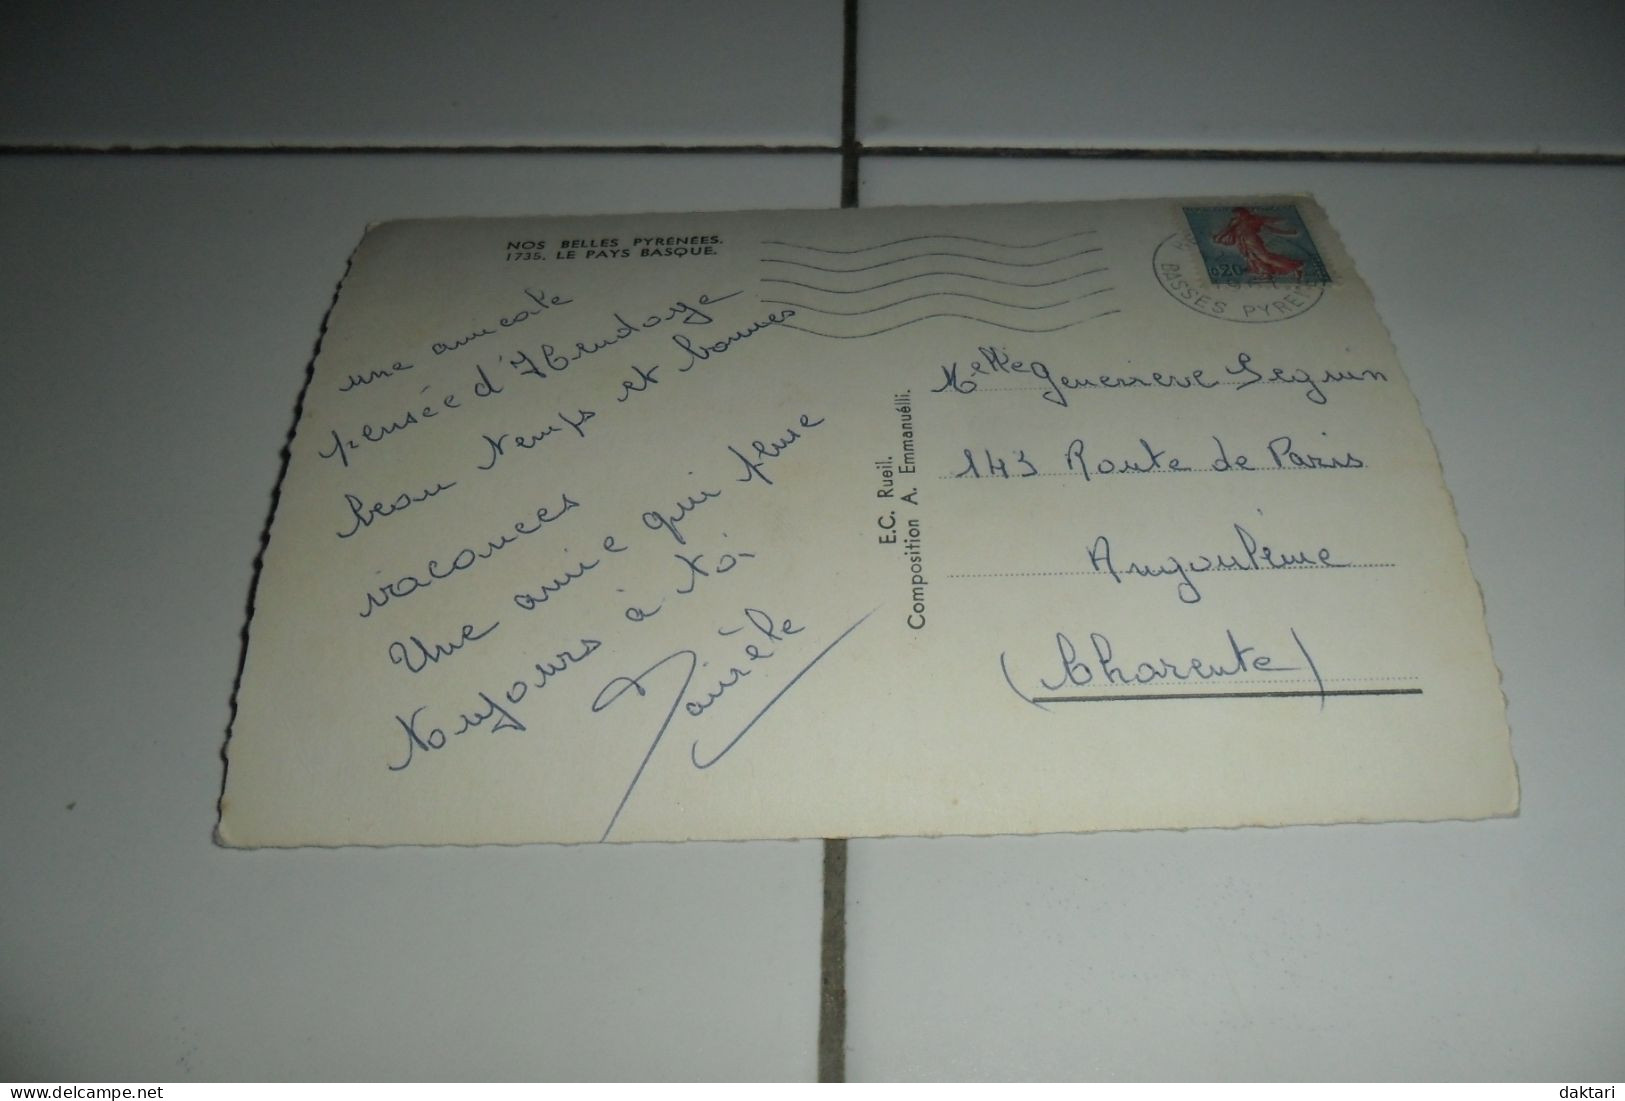 NOS BELLES PYRÉNÉES.
1735. LE PAYS BASQUE.
une amicale
pensée d'Hendaye
beau temps et bonnes
vacances
Une amie qui pense
toujours à toi
E.C. Rueil.
Composition A. Emmanuélli.
0,20
BASSES PYRENEES
Melle Genevieve Seguin
143 Route de Paris
Angoulême
(Charente)
daktari